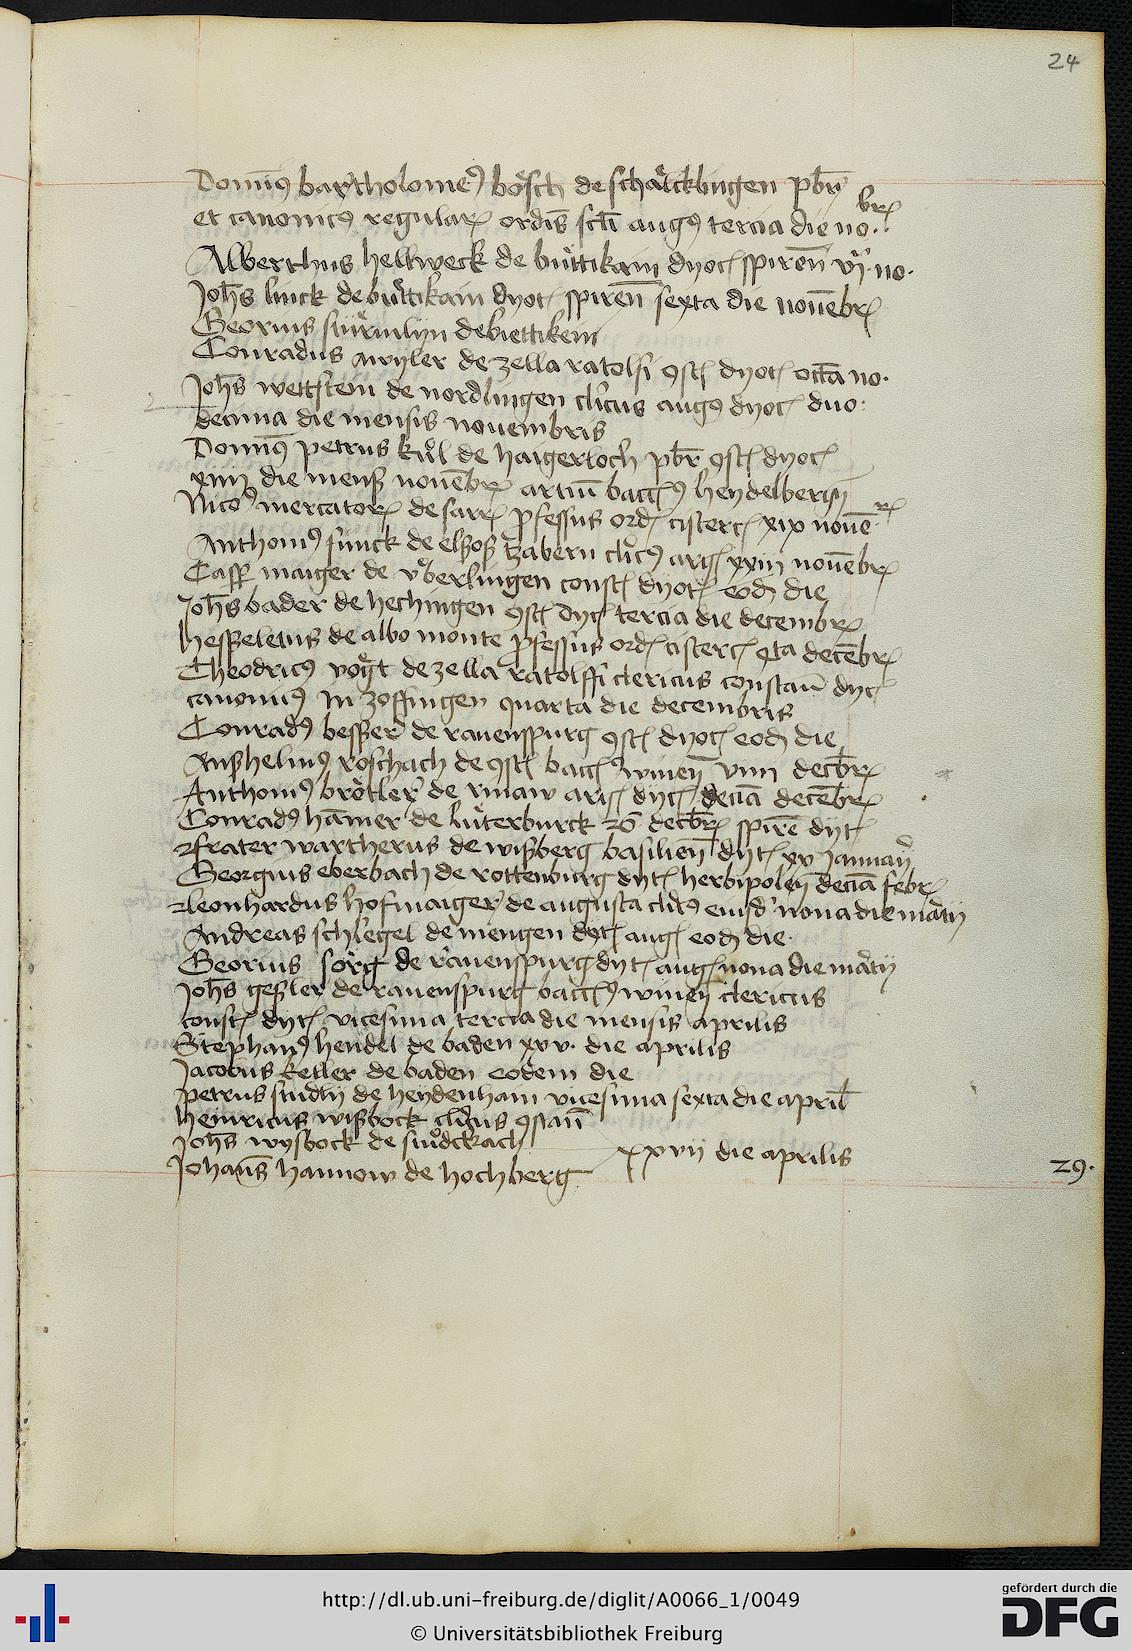 24
Domī9 bartholome9 bösch de schälcklingen pbr̄
et canonic9 regular ordīs sct̄i aug9 tercia die no
br
Albertus hellweck de büttikam dyoc spireñ vj no
Joh̄s linck de büttikam dyoc spireñ sexta die novēbr
Georius stürmlyn de biettikem
Conradus wyler de zella ratolfi 9st dyoc octā no
Joh̄s wettstein de nordlingen clicus aug9 dyoc duo
decima die mensis novembris
Domī9 petrus kül de haigerloch pbr̄ 9st dyoc
xiiij die mens novēbr artiū bacc9 heydelbergñ
Nico9 mercator de sarr pfessus ord cisterc xix novē
br
Anthoni9 funck de elsos zabern clic9 arg xxiij novēbr
Casp maiger de vberlingen const dyoc eod die
Joh̄s bader de hechingen 9st dyc tercia die decembr
hesseletus de albo monte pfessus ord cisterc qta decēbr
Theodric9 vogt de zella ratolffi clericus constañ dyc
canonic9 in zoffingen quarta die decembris
Conrad9 besserer de ravenspurg 9st dyoc eod die
Anshelm9 roschach de 9st bacc9 wineñ viiij decbr
Anthoni9 brötler de rinaw arg dyc decīa decēbr
Conrad9 hamer de luterburck decbr spirē dyt
frater wartherus de wisberg basilieñ dyt xx Januarij
Georgius eberbach de rottenburg dyt herbipoleñ decīa febr
leonhardus hofmaiger de augusta clic9 eiusd nona die marcij
Andreas schlegel de mengen dyt aug eod die
Georius sorg de ravenspurg dyt aug nona die marcij
Joh̄s gesler de ravenspurg bacc9 wineñ clericus
const dyt vicesima tercia die mensis aprilis
Stephan9 hendel de baden xxv die aprilis
Jacobus keller de baden eodem die
petrus sindly de heydenham vicesima sexta die april
heinricus wisbock clicus 9stañ
Joh̄s wysbock de sindckach
xxvij die aprilis
Johañs hannow de hochberg
29.
http://dl.ub.uni-freiburg.de/diglit/A0066_1/0049
© Universitätsbibliothek Freiburg
gefördert durch die
DFG